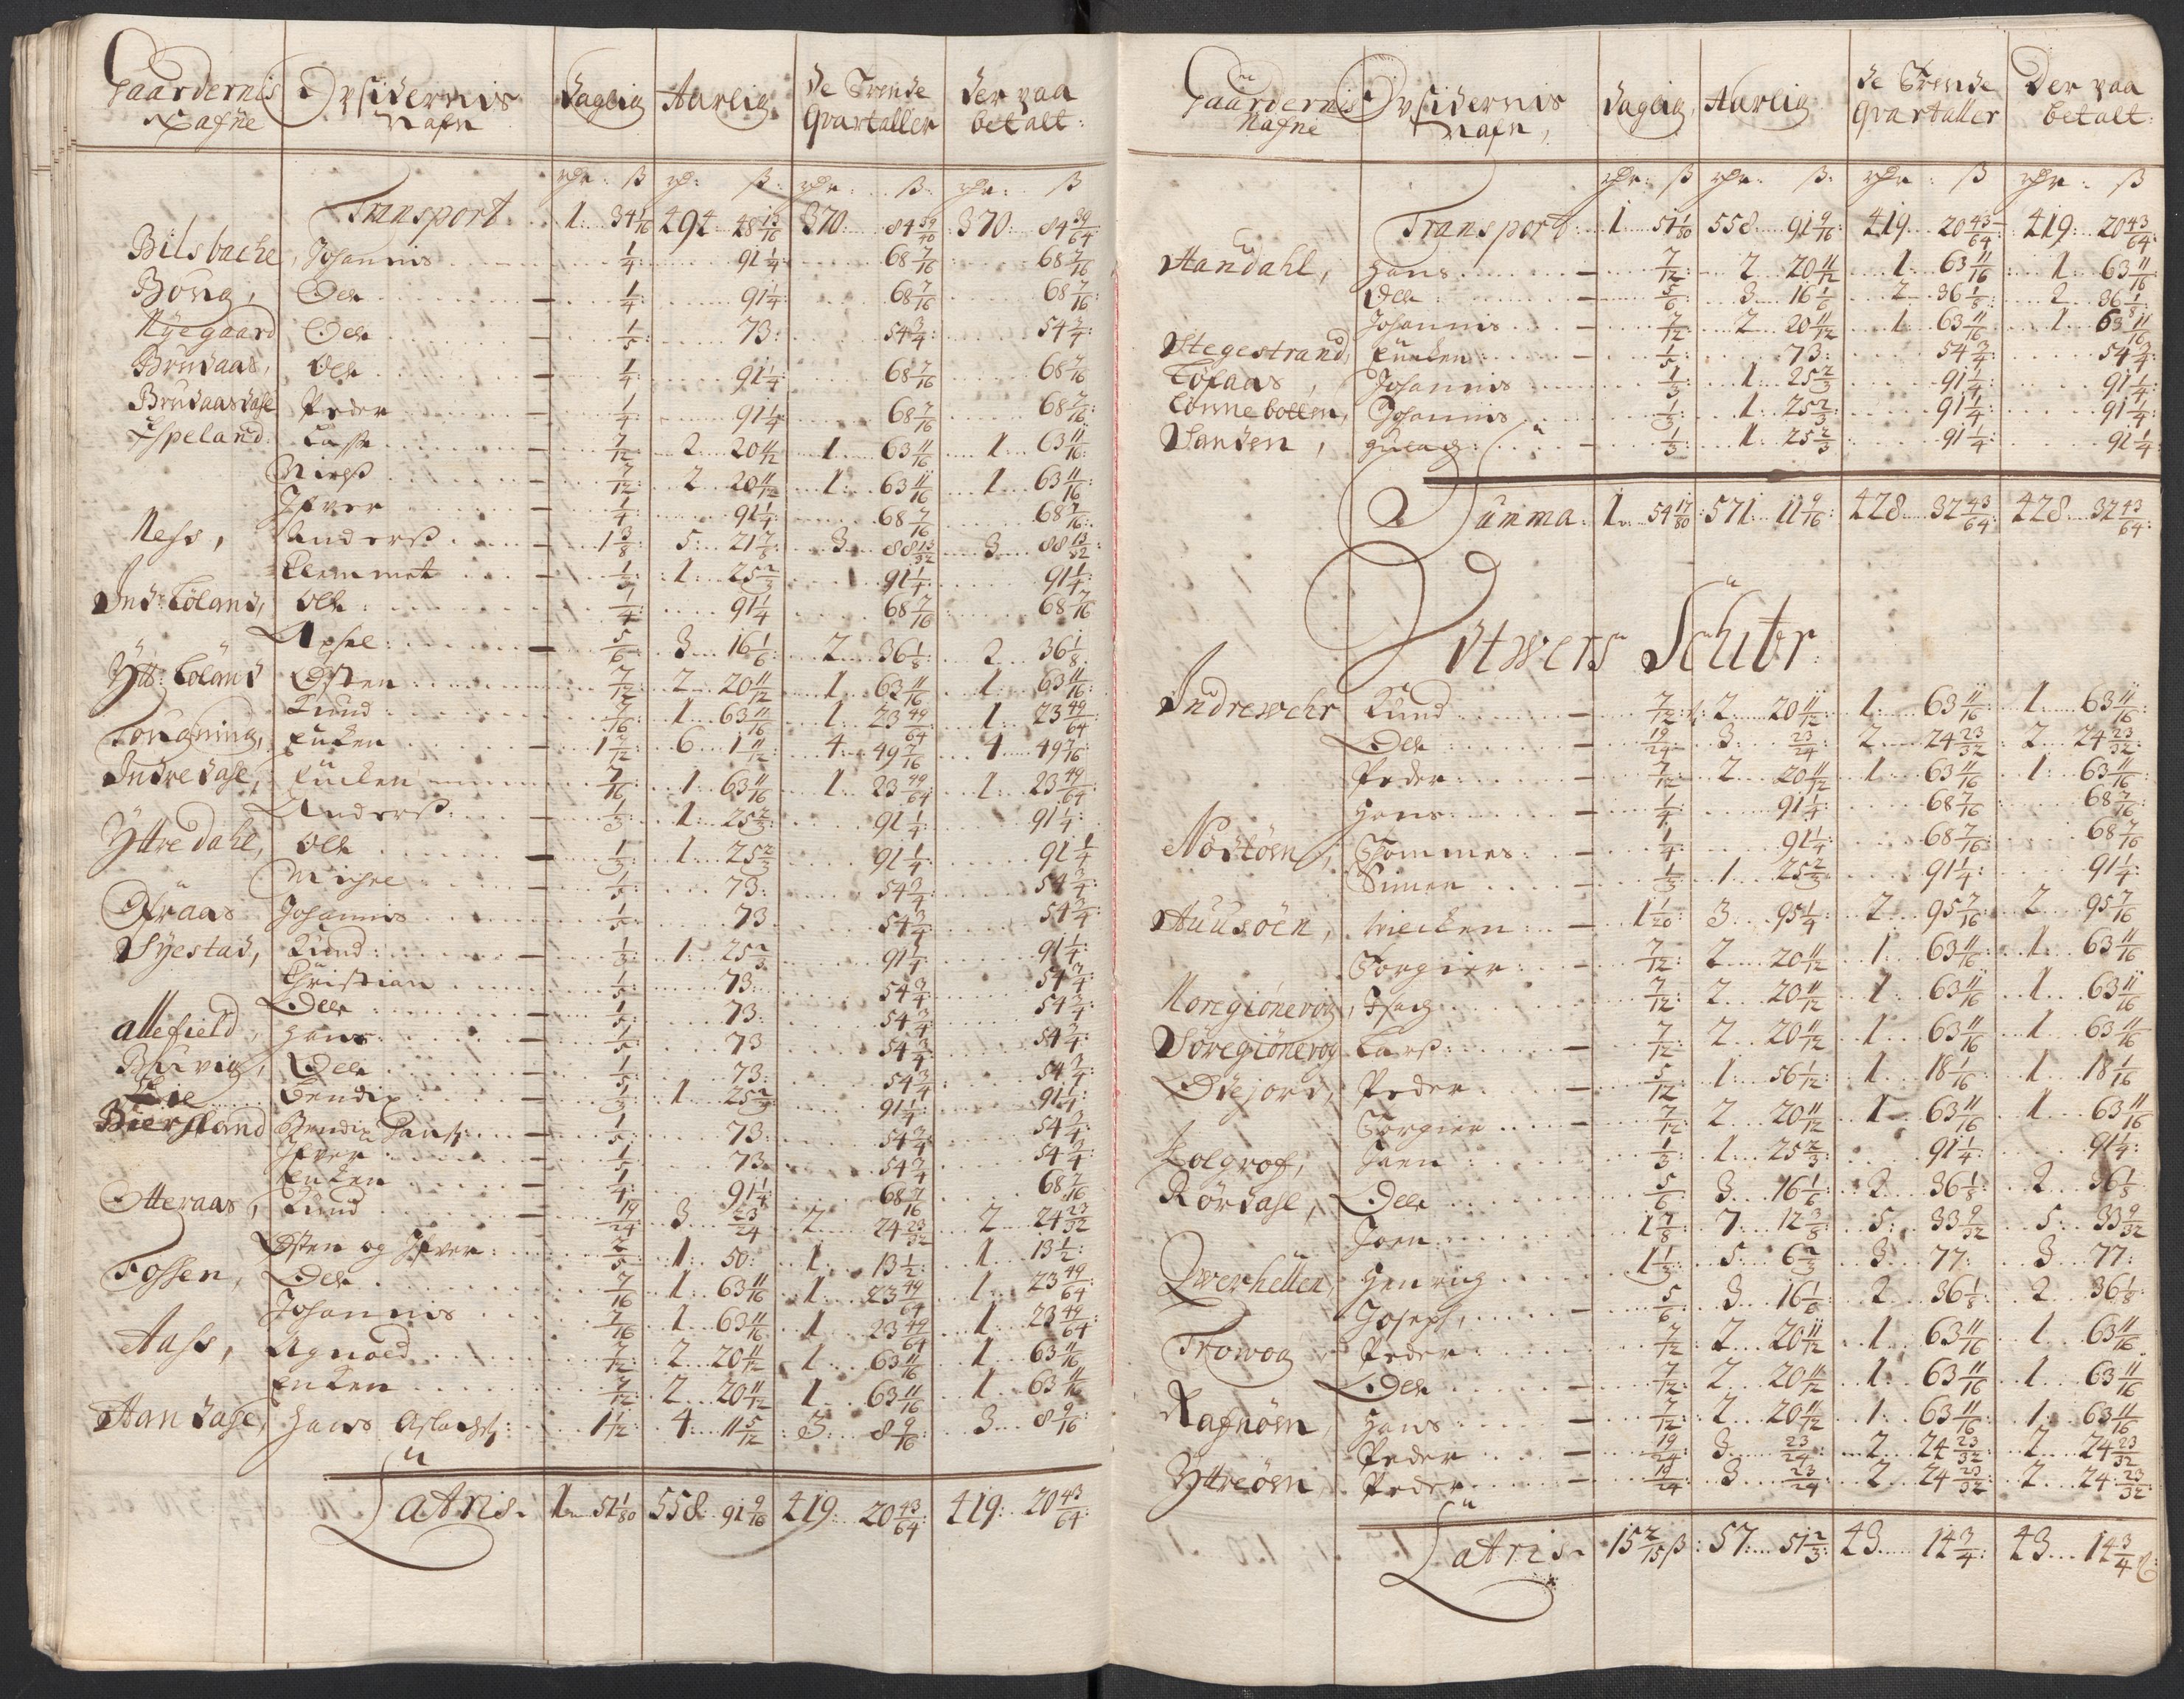 Gaardernis Nafne | Opsidernis Nafn | daglig | Aarlig | de Trende Qvartaller | der paa betalt:
rdr: ß | rd: ß: | rdr: ß: | rdr: ß
Transport. 1: 34 1/16 494 48 13/16 370: 84 39/40 370: 84 39/64
Bilsbache, Johannis 1/4: 91 1/4: 68 7/16 68 7/16
Bong, Ole 1/4: 91 1/4: 68 7/16 68 7/16:
Nÿegaard Ole 1/5: 73: 54 3/4: 54 3/4:
Brudaas, Ole 1/4: 91 1/4: 68 7/16: 68 7/16
Brudaasdahl Peder 1/4: 91 1/4 68 7/16: 68 7/16:
Espeland. Lasse 7/12: 2 20 11/12 1 63 11/16 1 63 11/16:
Nielß 7/12: 2 20 11/12 1: 63 11/16 1 63 11/16:
Ifver 1/4: 91 1/4: 68 7/16 68 7/16:
Ness, Anderß 1 3/8 5: 21 7/8 3 88 13/32 3 88 13/32:
Clemmet 1/3: 1: 25 2/3 91 1/4: 91 1/4:
Indr: Löland, Ole 1/4: 91 1/4 68 7/16 68 7/16
Axsel: 5/6: 3 16 1/6: 2 36 1/8: 2 36 1/8
Ÿtt: Löland Østen 7/12: 2 20 11/12 1 63 11/16 1: 63 11/16:
Knud 7/16: 1 63 11/16 1 23 49/64 1: 23 49/64
Tougning, Enken 1 7/12: 6 1 11/12 4 49 7/16 4 49 7/16
Indredahl, Encken 7/16 1: 63 11/16 1 23 49/64: 1: 23 49/64:
Anderß: 1/3: 1: 25 2/3: 91 1/4: 91 1/4:
Ÿttredahl, Ole 1/3: 1: 25 2/3 91 1/4: 91 1/4
Michel 1/5: 73: 54 3/4: 54 3/4:
Øfraas Johannis 1/5: 73 54 3/4 54 3/4:
Sÿestad, Knud: 1/3 1: 25 2/3 91 1/4: 91 1/4:
Christian 1/5 73: 54 3/4: 54 3/4:
Ole 1/5: 73: 54 3/4: 54 3/4:
allefield, Hans 1/5: 73 54 3/4: 54 3/4:
Burvig, Ole 1/5: 73: 54 3/4 54 3/4:
Lie Bendix 1/3: 1 25 2/3: 91 1/4: 91 1/4:
Bierfland Bendix Hans: 1/5: 73: 54 3/4: 54 3/4:
Ifver 1/5 73 54 3/4 54 3/4:
Enken 1/4: 91 1/4: 68 7/16 68 7/16
Otteraas, Knud 19/24: 3 23/24 2 24 23/32 2 24 23/32
Østen og Ifver: 2/5: 1: 50: 1: 13 1/2: 1 13 1/2:
Fossen, Ole 7/16 1 63 11/16 1 23 49/64 1: 23 49/64:
Johannis 7/16: 1 63 11/16: 1 23 49/64 1 23 49/64:
Aass, Agnold 7/12: 2 20 11/12 1: 63 11/16 1 63 11/16
Enken 7/12: 2 20 11/12 1 63 11/16 1 63 11/16
Aandahl, Hans Aslachs: 1 1/12: 4: 11 5/12 3: 8 9/16: 3 8 9/16:
Latris. 1 51 1/80 558 91 9/16 419: 20 43/64: 419: 20 43/64:
Gaardernis Nafne | Opsidernis Nafn, | daglig, | Aarlig | de Trende Qvartaller | Der paa betalt:
rdr: ß | rdr: ß: | rdr: ß | rdr: ß
Transport: 1 51 1/80 558 91 9/16: 419 20 43/64: 419: 20 43/64:
Aandahl, Hans 7/12: 2 20 11/12 1: 63 11/16 1 63 11/16
Ole 5/6: 3 16 1/6 2 36 1/8: 2 36 1/8:
Johannis 7/12: 2 20 11/12 1: 63 11/16 1 63 11/16
Stegestrand, Encken 1/5: 73: 54 3/4: 54 3/4:
Töfaas, Johannis 1/3: 1: 25 2/3 91 1/4: 91 1/4:
Lönnebotten, Johannis 1/3: 1: 25 2/3 91 1/4: 91 1/4:
Sanden, Gulach 1/3: 1: 25 2/3 91 1/4: 91 1/4
Summa. 1 54 17/80: 571 11 9/16: 428 32 43/64: 428 32 43/64:
Utwers Schibr:
Indrewehr Knud 7/12: 2 20 11/12: 1: 63 11/16: 1 63 11/16:
Ole 19/24: 3: 23/24: 2 24 23/32: 2 24 23/32:
Peder 7/12: 2 20 11/12 1 63 11/16 1: 63 11/16:
Hans 1/4: 91 1/4: 68 7/16 68 7/16:
Nordöen, Thommes: 1/4: 91 1/4: 68 7/16: 68 7/16
Simen 1/3: 1 25 2/3: 91 1/4: 91 1/4:
Huusöen, Wiecken 1 1/20: 3 95 1/4 2 95 7/16 2 95 7/16
Torgier 7/12: 2 20 11/12 1 63 11/16: 1 63 11/16
Noregiönevog, Isach 7/12: 2 20 11/12 1 63 11/16 1 63 11/16
Söregiönevog Larß 7/12: 2 20 11/12 1 63 11/16 1 63 11/16
Øiejord, Peder 5/12 1: 56 1/12: 1 18 1/16 1 18 1/16
Torgier 7/12: 2 20 11/12 1 63 11/16 1 63 11/16
Kolgrof, Joen 1/3: 1: 25 2/3: 91 1/4: 91 1/4:
Rördahl, Ole 5/6: 3 16 1/6: 2 36 1/8: 2 36 1/8
Joen 1 7/8: 7: 12 3/8: 5: 33 9/32 5: 33 9/32
Qverhellen, Henrich 1 1/3: 5 6 2/3 3 77: 3 77:
Joseph, 5/6: 3 16 1/6 2 36 1/8: 2 36 1/8:
Trowog Peder 7/12: 2 20 11/12 1 63 11/16 1 63 11/16
Ole 7/12: 2 20 11/12 1: 63 11/16 1 63 11/16
Rafnöen Hans 7/12: 2 20 11/12 1: 63 11/16 1: 63 11/16
Peder 19/24: 3 23/24: 2 24 23/32: 2 24 23/32
Ÿttreöen Peder 19/24 3 23/24: 2 24 23/32: 2 24 23/32:
Latris. 15 2/15 ß: 57 51 2/3: 43 14 3/4: 43 14 3/4